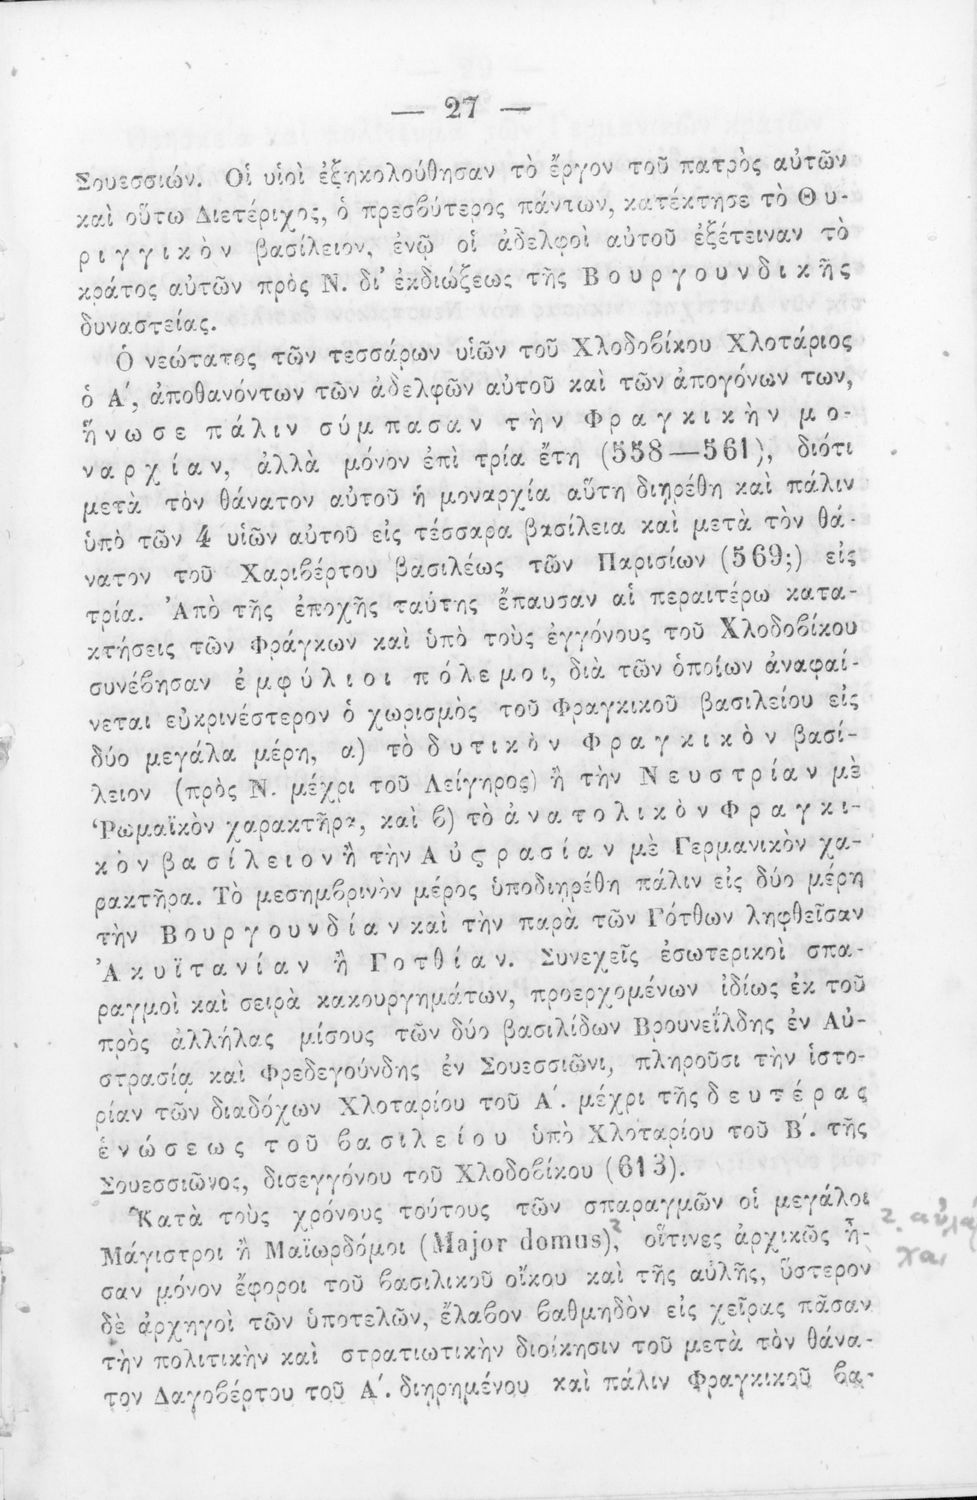 — 27 —
Σουεσσιών. Οἱ υἱοὶ ἐξηκολούθησαν τὸ ἔργον τοῦ πατρὸς αὐτῶν
καὶ οὕτω Διετέριχος, ὁ πρεσβύτερος πάντων, κατέκτησε τὸ Θυ-
ριγγικὸν βασίλειον, ἐνῷ οἱ ἀδελφοὶ αὐτοῦ ἐξέτειναν τὸ
κράτος αὐτῶν πρὸς Ν. δι' ἐκδιώξεως τῆς Βουργουνδικῆς
δυναστείας.
Ὁ νεώτατος τῶν τεσσάρων υἱῶν τοῦ Χλοδοβίκου Χλοτάριος
ὁ Α', ἀποθανόντων τῶν ἀδελφῶν αὐτοῦ καὶ τῶν ἀπογόνων των,
ἥνωσε πάλιν σύμπασαν τὴν Φραγκικὴν μο-
ναρχίαν, ἀλλὰ μόνον ἐπὶ τρία ἔτη (558—561), διότι
μετὰ τὸν θάνατον αὐτοῦ ἡ μοναρχία αὕτη διῃρέθη καὶ πάλιν
ὑπὸ τῶν 4 υἱῶν αὐτοῦ εἰς τέσσαρα βασίλεια καὶ μετὰ τὸν θά-
νατον τοῦ Χαριβέρτου βασιλέως τῶν Παρισίων (569;) εἰς
τρία. Ἀπὸ τῆς ἐποχῆς ταύτης ἔπαυσαν αἱ περαιτέρω κατα-
κτήσεις τῶν Φράγκων καὶ ὑπὸ τοὺς ἐγγόνους τοῦ Χλοδοβίκου
συνέβησαν ἐμφύλιοι πόλεμοι, διὰ τῶν ὁποίων ἀναφαί-
νεται εὐκρινέστερον ὁ χωρισμὸς τοῦ Φραγκικοῦ βασιλείου εἰς
δύο μεγάλα μέρη, α) τὸ δυτικὸν Φραγκικὸν βασί-
λειον (πρὸς Ν. μέχρι τοῦ Λείγηρος) ἢ τὴν Νευστρίαν μὲ
Ῥωμαϊκὸν χαρακτῆρα, καὶ β) τὸ ἀνατολικὸν Φραγκι-
κὸν βασίλειον ἢ τὴν Αὐςρασίαν μὲ Γερμανικὸν χα-
ρακτῆρα. Τὸ μεσημβρινὸν μέρος ὑποδιῃρέθη πάλιν εἰς δύο μέρη
τὴν Βουργουνδίαν καὶ τὴν παρὰ τῶν Γότθων ληφθεῖσαν
Ἀκυϊτανίαν ἢ Γοτθίαν. Συνεχεῖς ἐσωτερικοὶ σπα-
ραγμοὶ καὶ σειρὰ κακουργημάτων, προερχομένων ἰδίως ἐκ τοῦ
πρὸς ἀλλήλας μίσους τῶν δύο βασιλίδων Βρουνεΐλδης ἐν Αὐ-
στρασίᾳ καὶ Φρεδεγούνδης ἐν Σουεσσιῶνι, πληροῦσι τὴν ἱστο-
ρίαν τῶν διαδόχων Χλοταρίου τοῦ Α'. μέχρι τῆς δευτέρας
ἑνώσεως τοῦ βασιλείου ὑπὸ Χλοταρίου τοῦ Β'. τῆς
Σουεσσιῶνος, δισεγγόνου τοῦ Χλοδοβίκου (613).
Κατὰ τοὺς χρόνους τούτους τῶν σπαραγμῶν οἱ μεγάλοι
Μάγιστροι ἢ Μαϊωρδόμοι (Major domus),² οἵτινες ἀρχικῶς ἦ-
σαν μόνον ἔφοροι τοῦ βασιλικοῦ οἴκου καὶ τῆς αὐλῆς, ὕστερον
δὲ ἀρχηγοὶ τῶν ὑποτελῶν, ἔλαβον βαθμηδὸν εἰς χεῖρας πᾶσαν
τὴν πολιτικὴν καὶ στρατιωτικὴν διοίκησιν τοῦ μετὰ τὸν θάνα-
τον Δαγοβέρτου τοῦ Α'. διῃρημένου καὶ πάλιν Φραγκικοῦ βα-
2. αὐλάρ
χαι